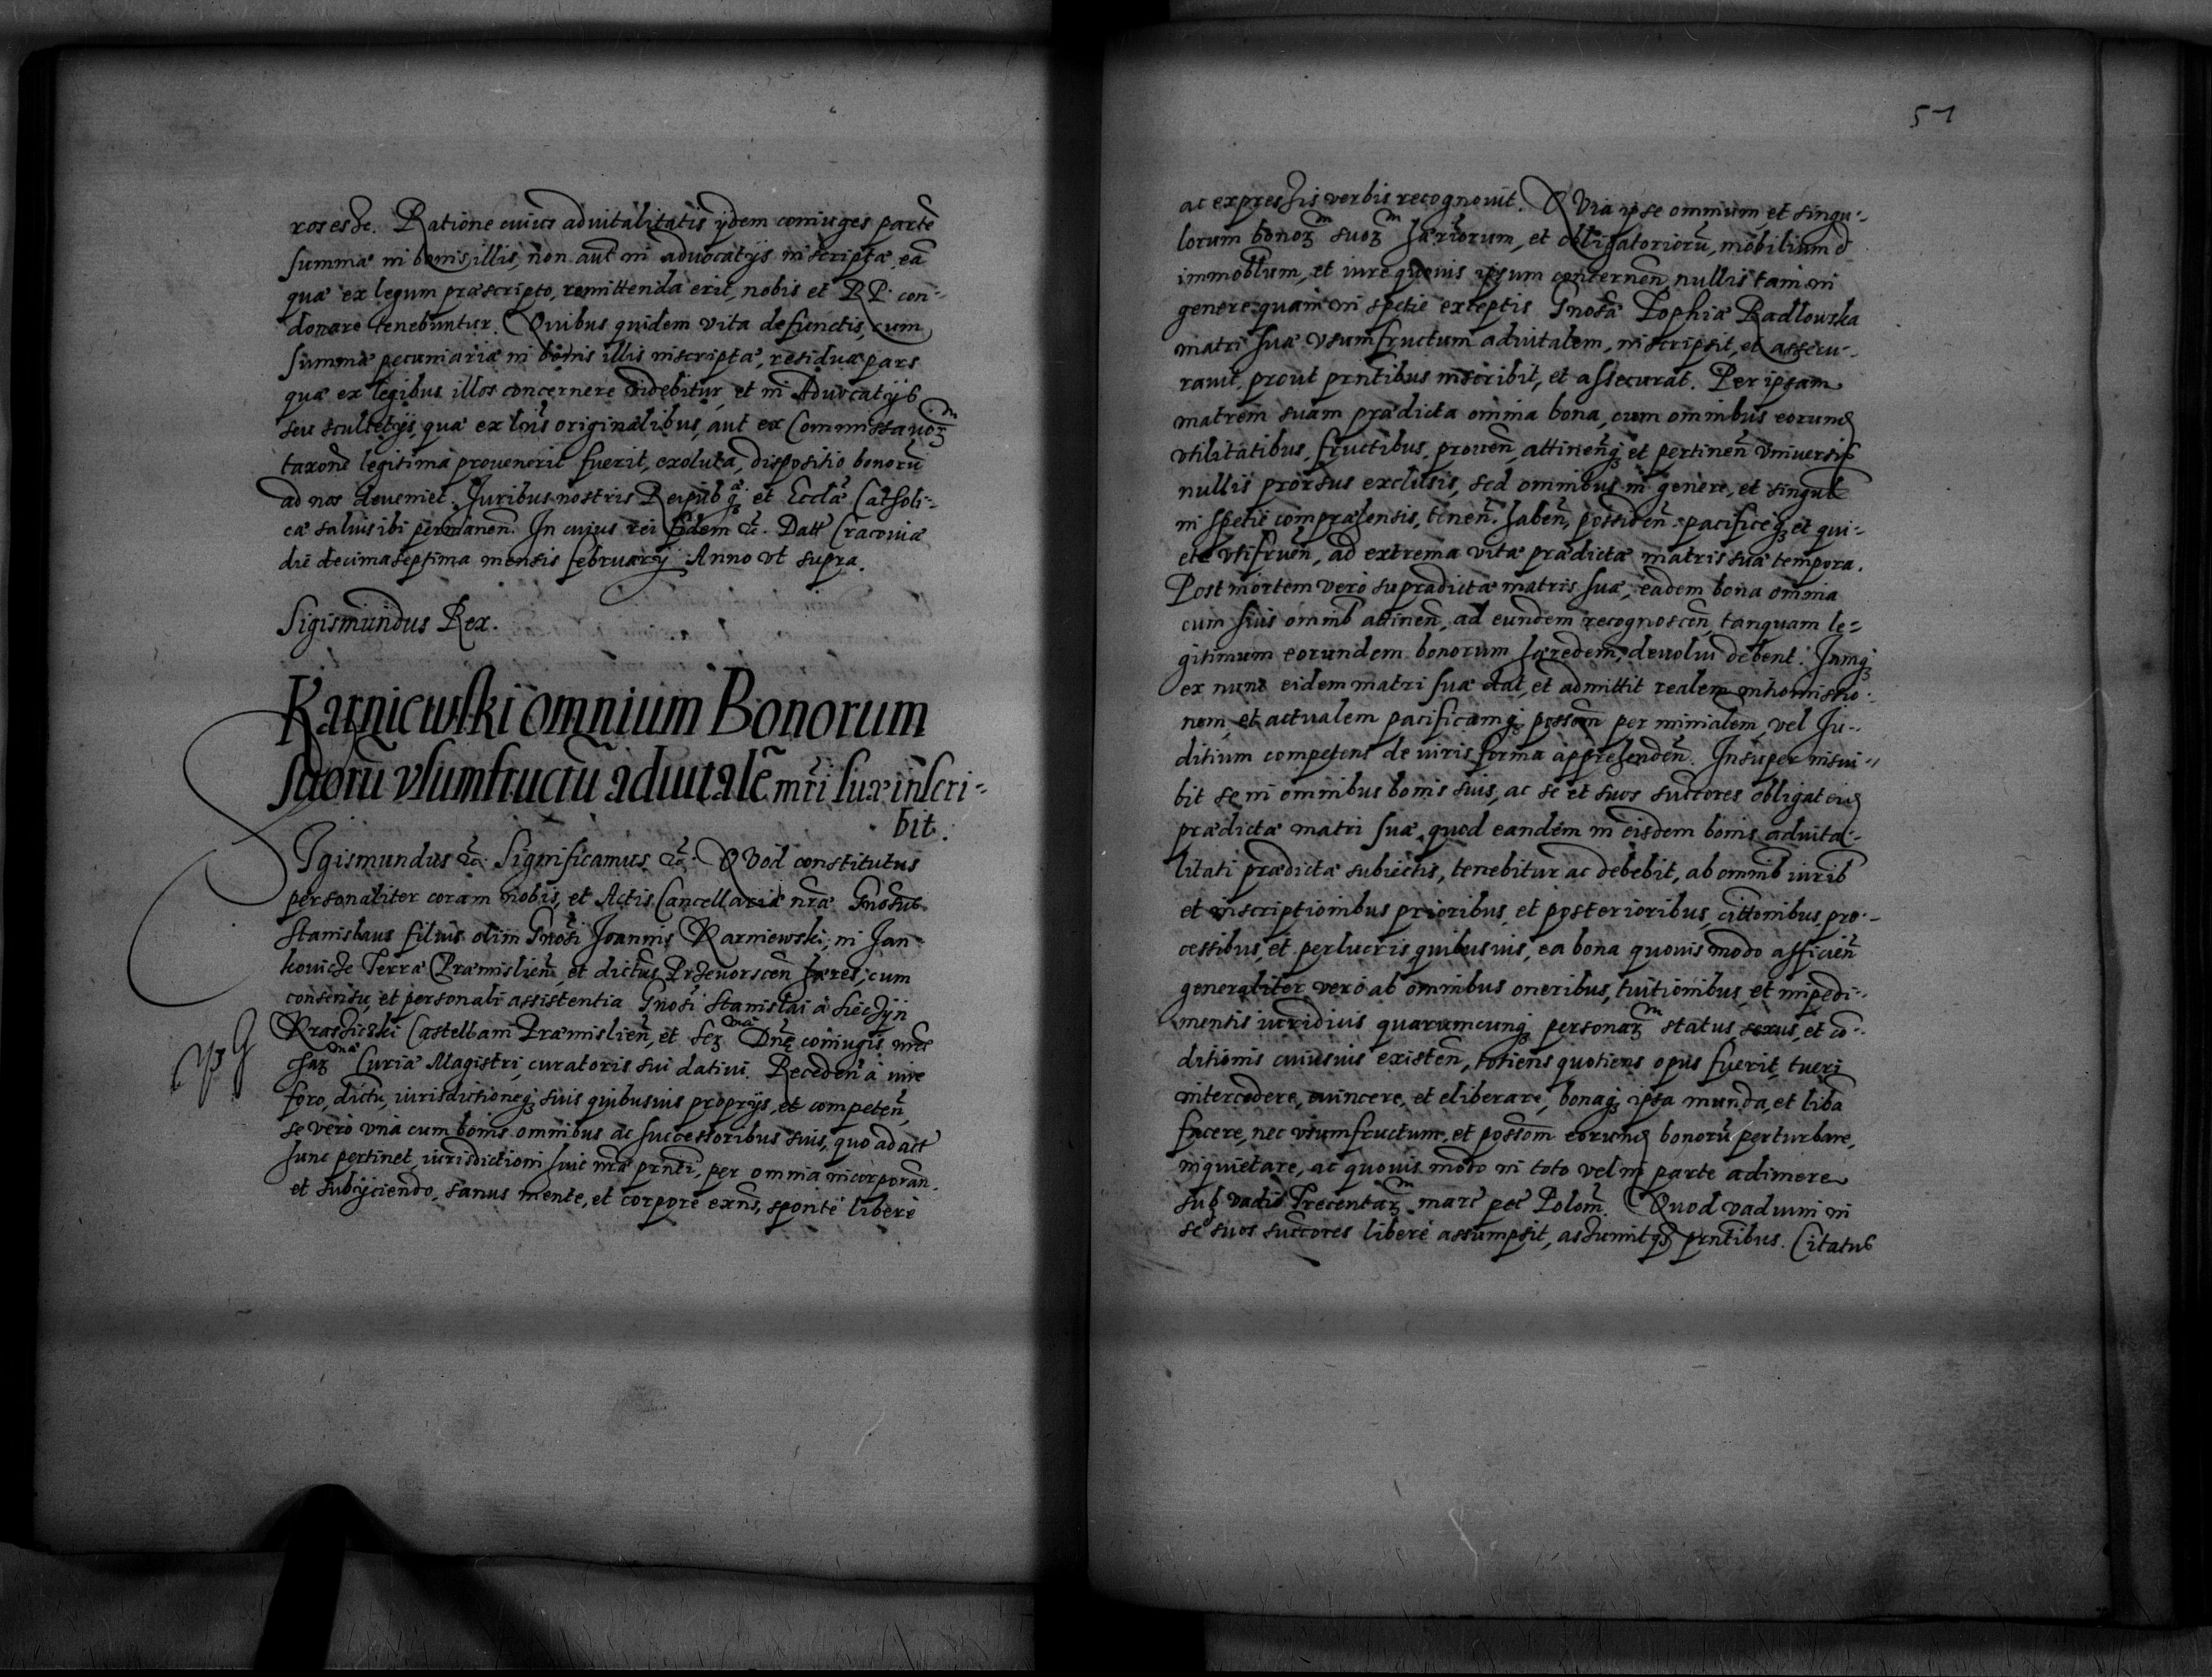 ros esse. Ratione cuius aduitalitatis ijdem coniuges parte
summæ in bonis illis, non aut in aduocatijs inscriptæ, ea
quæ ex legum præscripto, remittenda erit, nobis et RP. con-
donare tenebuntur. Quibus quidem vita defunctis, cum
summæ pecuniariæ in bonis illis inscriptæ, residuæ pars
quæ ex legibus illos concernere videbitur, et in Aduocatijs
seu scultetijs, quæ ex lris originalibus, aut ex Commissarioꝝ
taxone legitima prouenerit fuerit, exoluta, dispositio bonorũ
ad nos deueniet. Juribus nostris Reipub qꝫ et Ecclæ Catholi-
cæ saluis ibi permanen. In cuius rei fidem &c. Datt Cracouiæ
die decima septima mensis february Anno vt supra.
Sigismundus Rex.
Karniewski omnium Bonorum
suorũ vsumfructũ aduitalẽ mri suæ inscri-
bit.
Sigismundus &c. Significamus &c. QVod constitutus
personaliter coram nobis, et Actis Cancellariæ nræ Gnosus
Stanislaus filius olim Gnosi Joannis Karniewski, in Jan-
kouicze Terræ Præmislien, et dictus Przeuorscen hæres, cum
consensu, et personali assistentia Gnosi Stanislai a Siecżyn
Krasicżki Castellani Præmislien, et Seꝫ Dnę coniugis
Curiæ Magistri, curatoris sui datiui. Receden a iure
foro, dictu, iurisdictioneqꝫ suis quibusuis proprijs, et competen,
se vero vna cum bonis omnibus ac successoribus suis, quo ad act
hunc pertinet, iurisdictioni huic nræ prnti, per omnia incorporan.
et subijciendo, sanus mente, et corpore exns, sponte libere
51
ac expressis verbis recognouit. QVia ipse omnium, et singu-
lorum bonoꝝ suoꝝ hæriorum, et obligatoriorũ, mobilium &
immoblium, et iure quouis ipsum concernen, nullis tam in
genere quam in specie exceptis Gnosæ Zophiæ Radlowska
matri suæ vsumfructum aduitalem, inscripsit, et assecu-
rauit, prout prntibus inscribit, et assecurat. Per ipsam
matrem suam prædicta omnia bona, cum omnibus eorund
vtilitatibus, fructibus, prouen, attinenqꝫ et pertinen vniuersis
nullis prorsus exclusis, sed omnibus in genere, et singulis
in specie comprehensis, tenen. haben, possiden. pacificeqꝫ et qui-
ete vtifruen, ad extrema vitæ prædictæ matris suæ tempora.
Post mortem vero supradictæ matris suæ, eadem bona omnia
cum suis omnib attinen, ad eundem recognoscen, tanquam le-
gitimum eorundem bonorum hæredem, deuolui debent. Jamqꝫ
ex nunc eidem matri suæ dat, et admittit realem intromissio-
nem, et actualem pacificamqꝫ possom per minialem, vel Ju-
ditium competens de iuris forma apprehenden. Insuper inscri-
bit se in omnibus bonis suis, ac se et suos succores obligat eid
prædictæ matri suæ, quod eandem in eisdem bonis aduita-
litati prædictæ subiectis, tenebitur ac debebit, ab omnib iurib
et inscriptionibus prioribus, et posterioribus, cittonibus, pro-
cessibus, et perlucris quibusuis, ea bona quouis modo afficien
generaliter vero ab omnibus oneribus, tuitionibus, et impedi-
mentis iuridicis quarumcunqꝫ personaꝝ status, sexus, et co-
ditionis cuiusuis existen, totiens quotiens opus fuerit, tueri
intercedere, euincere, et eliberare, bonaqꝫ ipsa munda, et liba
facere, nec vsumfructum, et possom eorund bonorũ perturbare,
inquietare, ac quouis modo in toto vel in parte adimere
sub vadio Trecentaꝝ marc pec Polom. Quod vadium in
se & suos succores libere assumpsit, assumitqꝫ prntibus. Citatus